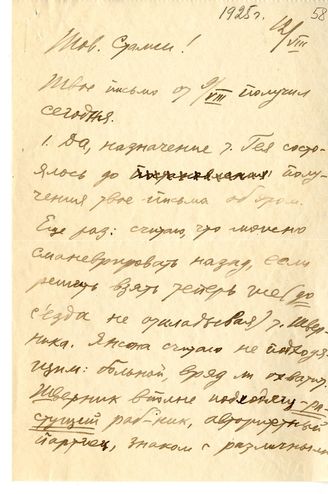 1925 г. 58
12/VIII
Тов. Сталин!
Твое письмо от 9/VIII получил
сегодня.
1. Да, назначение т. Гея состо-
ялось до полу-
чения твоего письма об этом.
Еще раз: считаю, что можно
сманеврировать назад, если
решить взять теперь же (до
съезда не откладывая) т. Швер-
ника. Янсона считаю не подходя-
щим: больной вряд ли охватит.
Шверник вполне подходящ – ра-
стущий раб-ник, авторитетный
партиец, знаком с различными